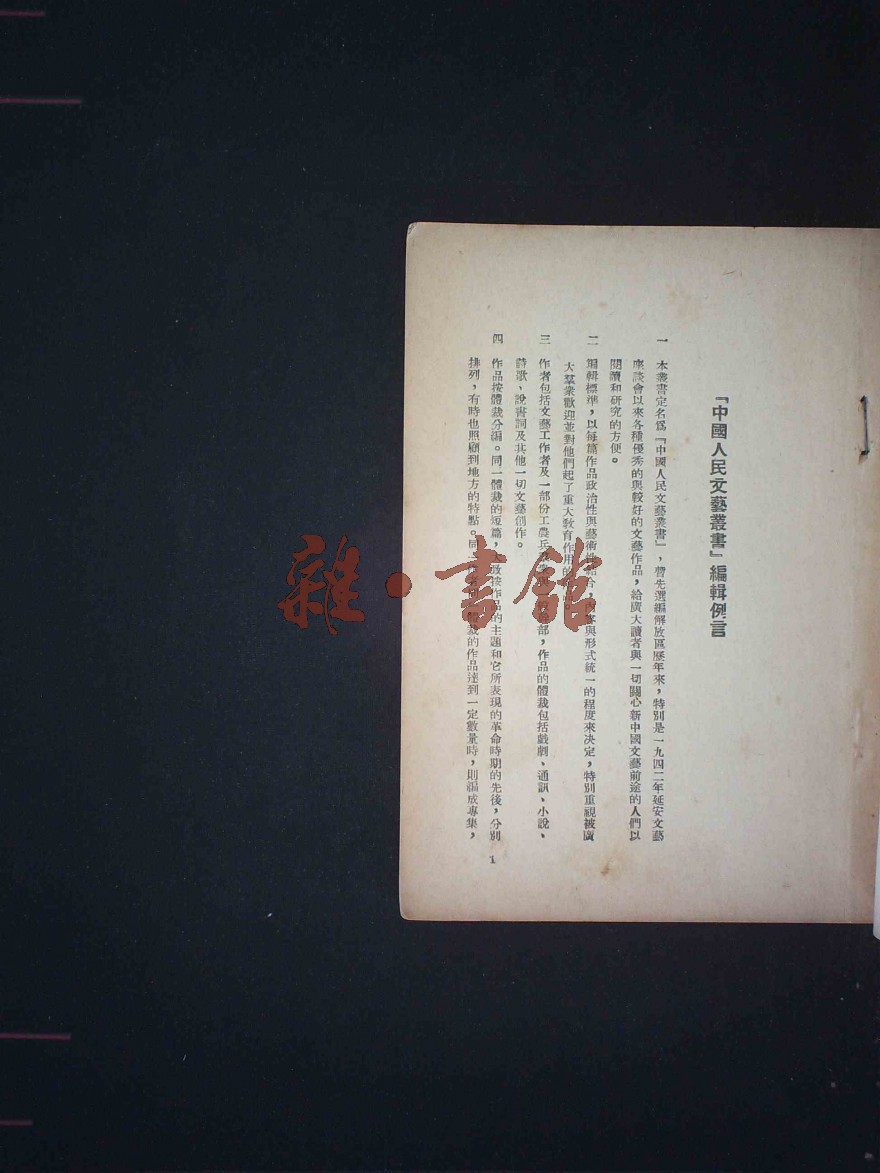 『中國人民文藝叢書』編輯例言
一 本叢書定名爲『中國人民文藝叢書』，暫先選編解放區歷年來，特別是一九四二年延安文藝
座談會以來各種優秀的與較好的文藝作品，給廣大讀者與一切關心新中國文藝前途的人們以
閱讀和研究的方便。
二 編輯標準，以每篇作品政治性與藝術性結合，內容與形式統一的程度來決定，特別重視被廣
大羣衆歡迎並對他們起了重大教育作用的作品。
三 作者包括文藝工作者及一部份工農兵 部，作品的體裁包括戲劇、通訊、小說、
詩歌、說書詞及其他一切文藝創作。
四 作品按體裁分編。同一體裁的短篇，大致按作品的主題和它所表現的革命時期的先後，分別
排列，有時也照顧到地方的特點。同 體裁的作品達到一定數量時，則編成專集，
1
雜·書館